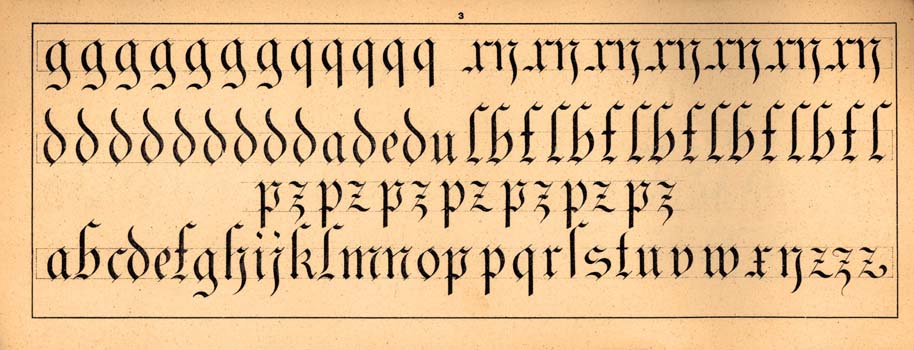 3
g g g g g g g q q q q q xy xy xy xy xy xy xy
d d d d d d d d d a d e d u l b f l b f l b f l b f l b f l
pz pz pz pz pz pz pz
a b c d e f g h i j k l m n o p p q r ſ s t u v w x y z z z